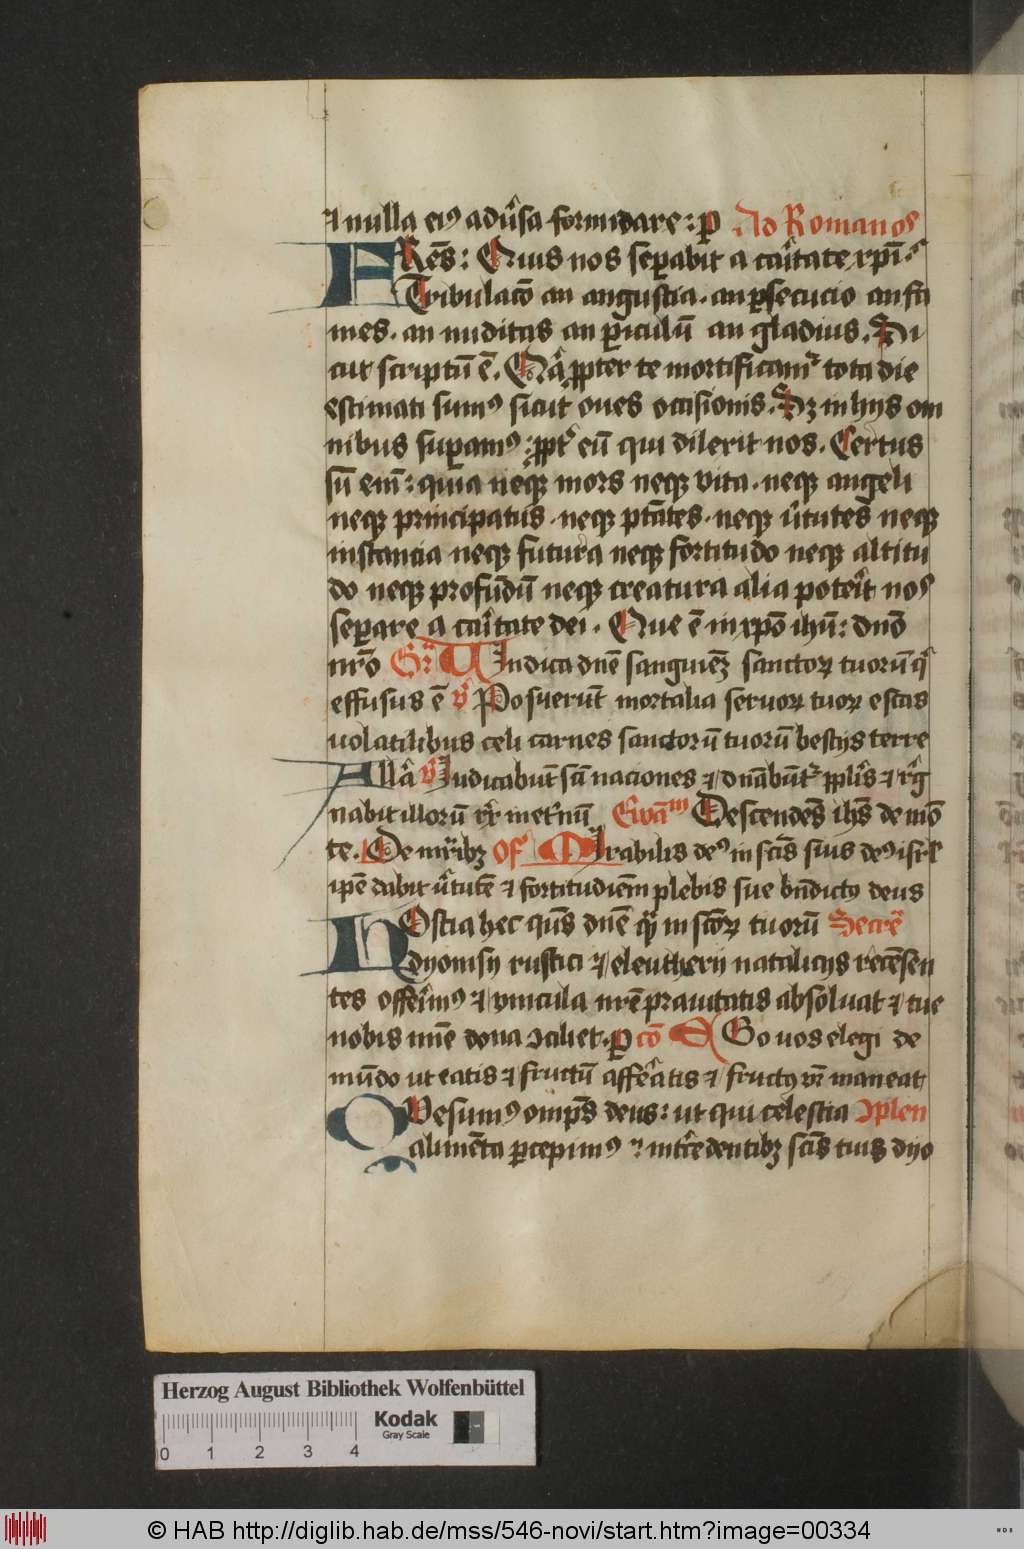 ⁊ nulla eiꝰ adũsa formidare: ꝑ Ad Romanos
FRẽs: Quis nos seꝑabit a caritate xp̃i.
Tribulacõ an angustia. an ꝑsecucio an fa
mes. an nuditas an ꝑiculũ an gladius. Si
cut scriptũ ẽ. Qã ꝓpter te mortificamᷣ tota die
estimati sumꝰ sicut oues occisionis. Sꝫ in hijs om
nibus suꝑamꝰ: ꝓptᷣ eũ qui dilexit nos. Certus
sũ eni̅: quia neqꝫ mors neqꝫ vita. neqꝫ angeli
neqꝫ principatus. neqꝫ ptãtes. neqꝫ ũtutes neqꝫ
instancia neqꝫ futura neqꝫ fortitudo neqꝫ altitu
do neqꝫ profũdũ neqꝫ creatura alia poterit nos
seꝑare a caritate dei. Que ẽ in xp̃o ihũ: dño
nr̃o Gr̃ Vindica dñe sanguiẽꝫ sanctoꝝ tuorũ qͥ
effusus ẽ v̾ Posuerũt mortalia seruoꝝ tuoꝝ escas
uolatilibus celi carnes sanctorũ tuorũ bestijs terre
Allã v̾ Iudicabũt sãi naciones ⁊ dnãbũtᷣ ppl̃is ⁊ rͥg
nabit illorũ rͥx met̾nũ Ewãm Descendẽs ihs̃ de mõ
te. De mr̃ibꝫ Of Mirabilis deꝰ in scĩs suis deꝰ isrl̃
ipẽ dabit ũtutẽ ⁊ fortitudiẽm plebis sue bñdictꝰ deus
HOstia hec qũs dñe qͣ in scõꝝ tuorũ Secrẽ
dyonisij rustici ⁊ eleutherij natalicijs recẽsen
tes offerimꝰ ⁊ vincula nr̃e prauitatis absoluat ⁊ tue
nobis mĩe dona ꝯciliet. ꝑ cõ Ego uos elegi de
mũdo ut eatis ⁊ fructũ afferatis ⁊ fructꝰ vr̃ maneat
QVesumꝰ omp̃s deus: ut qui celestia Cõplen
alimẽta ꝑcepimꝰ ⁊ intᷣcedentibꝫ scĩs tuis dyo
Herzog August Bibliothek Wolfenbüttel
Kodak
Gray Scale
0 1 2 3 4
© HAB http://diglib.hab.de/mss/546-novi/start.htm?image=00334